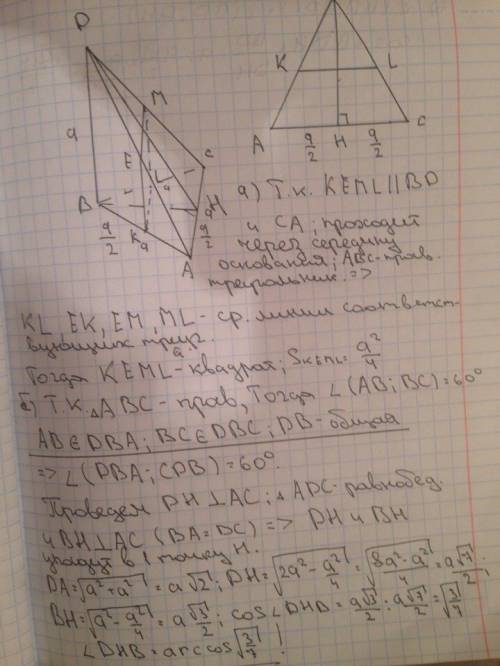 D
M
K
L
a
E
C
L
A
H
C
a/2
a/2
B
H
a/2
K
a
a/2
A
а) Т.к. KEML || BD
и CA; проходит
через середину
основания; ABC-прав.
треугольник. =>
KL, EK, EM, ML - ср. линии соответст-
вующих треуг.
Тогда KEML - квадрат; S KEML = a²/4
б) Т.к. △ABC - прав, Тогда ∠(AB; BC) = 60°
AB ∈ DBA; BC ∈ DBC; DB - общая
=> ∠(DBA; CDB) = 60°.
Проведем DH ⊥ AC; △ADC - равнобед.
и BH ⊥ AC (BA = DC) => DH и BH
упадут в 1 точку H.
DA = √(a² + a²) = a√2; DH = √(2a² - a²/4) = √((8a² - a²)/4) = a√7/2;
BH = √(a² - a²/4) = a√3/2; cos∠DHB = a√3/2 : a√7/2 = √(3/7)
∠DHB = arccos√(3/7)!